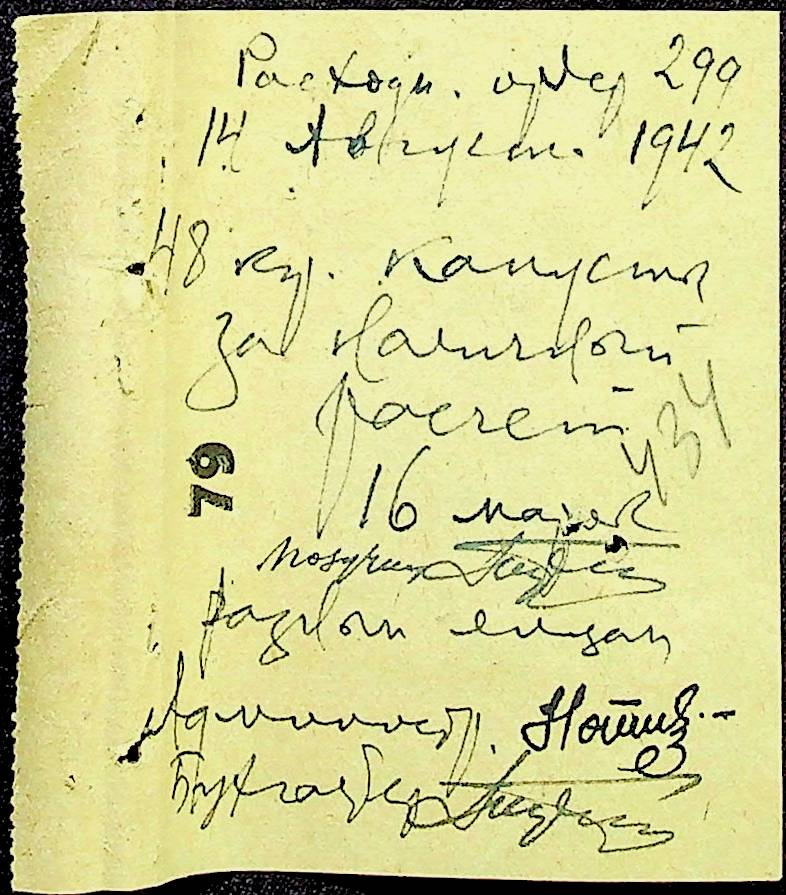 Расходн. ордер 299
14 Август. 1942
48 кг. капусты
за наличный
расчет
434
16 марок
79
Получил
разным лицам
Администр.
Бухгалтер